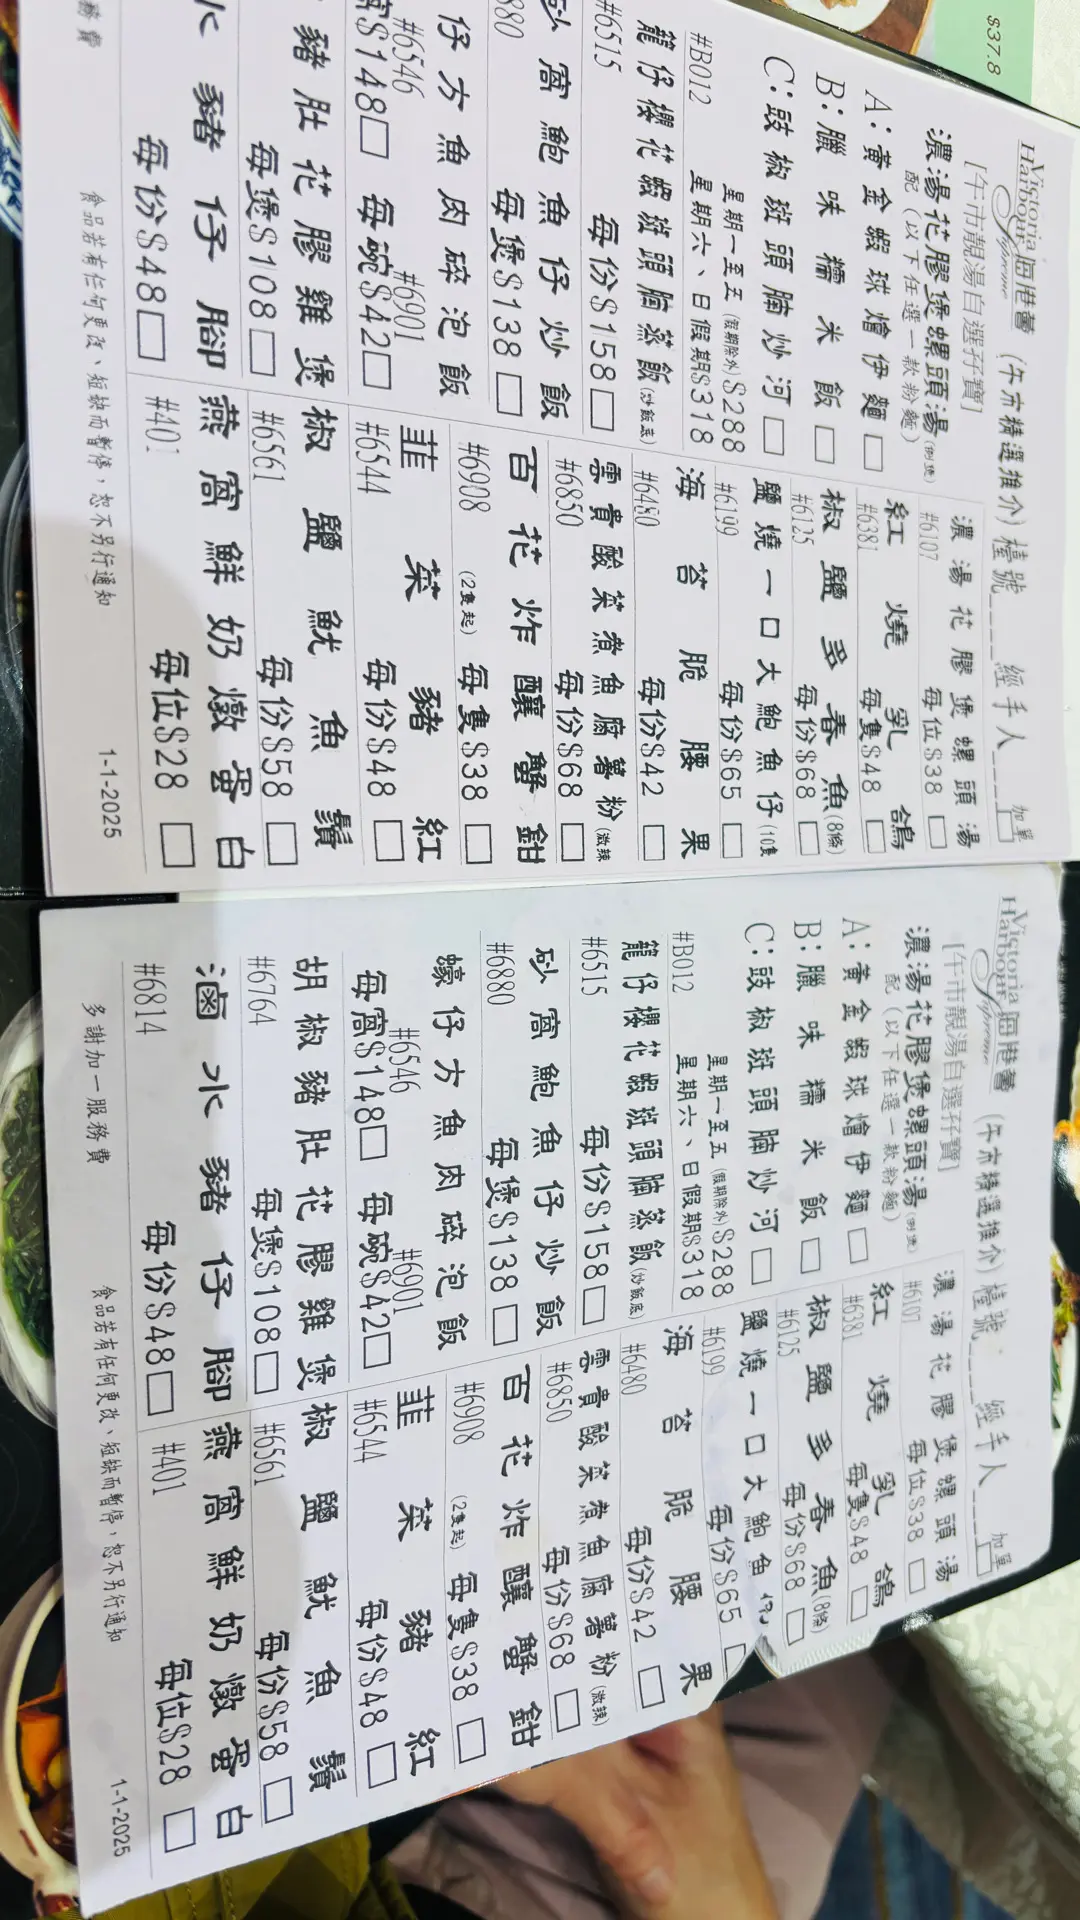 $37.8
Victoria Harbour Supreme 海港薈 (午市精選推介) 檯號____ 經手人____ 加單
[午市靚湯自選孖寶]
濃湯花膠堡螺頭湯(例煲)
配(以下任選一款粉麵)
A:黃金蝦球燴伊麵
B:臘味糯米飯
C:豉椒斑頭腩炒河
星期一至五(假期除外)$288
#B012 星期六、日假期$318
籠仔櫻花蝦斑頭腩蒸飯(炒飯底)
#6515 每份$158
砂窩鮑魚仔炒飯
880 每煲$138
仔方魚肉碎泡飯
#6546 #6901
窩$148 每碗$42
豬肚花膠雞煲
每煲$108
水豬仔腳
每份$48
濃湯花膠煲螺頭湯
#6107 每位$38
紅燒乳鴿
#6381 每隻$48
椒鹽多春魚(8條)
#6125 每份$68
鹽燒一口大鮑魚仔(10隻
#6199 每份$65
海苔脆腰果
#6480 每份$42
雲貴酸菜煮魚腐薯粉(微辣
#6850 每份$68
百花炸釀蟹鉗
#6908 (2隻起) 每隻$38
韮菜豬紅
#6544 每份$48
椒鹽魷魚鬚
#6561 每份$58
燕窩鮮奶燉蛋白
#401 每位$28
務費 食品若有任何更改、短缺而暫停,恕不另行通知 1-1-2025
Victoria Harbour Supreme 海港薈 (午市精選推介) 檯號____ 經手人____ 加單
[午市靚湯自選孖寶]
濃湯花膠煲螺頭湯(例煲)
配(以下任選一款粉麵)
A:黃金蝦球燴伊麵
B:臘味糯米飯
C:豉椒斑頭腩炒河
星期一至五(假期除外)$288
#B012 星期六、日假期$318
籠仔櫻花蝦斑頭腩蒸飯(炒飯底)
#6515 每份$158
砂窩鮑魚仔炒飯
#6880 每煲$138
蠔仔方魚肉碎泡飯
#6546 #6901
每窩$148 每碗$42
胡椒豬肚花膠雞煲
#6764 每煲$108
滷水豬仔腳
#6814 每份$48
濃湯花膠煲螺頭湯
#6107 每位$38
紅燒乳鴿
#6381 每隻$48
椒鹽多春魚(8條)
#6125 每份$68
鹽燒一口大鮑魚
#6199 每份$65
海苔脆腰果
#6480 每份$42
雲貴酸菜煮魚腐薯粉(微辣)
#6850 每份$68
百花炸釀蟹鉗
#6908 (2隻起) 每隻$38
韮菜豬紅
#6544 每份$48
椒鹽魷魚鬚
#6561 每份$58
燕窩鮮奶燉蛋白
#401 每位$28
多謝加一服務費 食品若有任何更改、短缺而暫停,恕不另行通知 1-1-2025